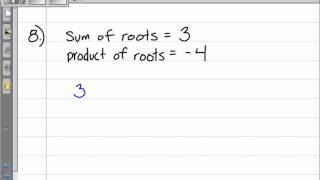 8.) Sum of roots = 3
product of roots = -4
3